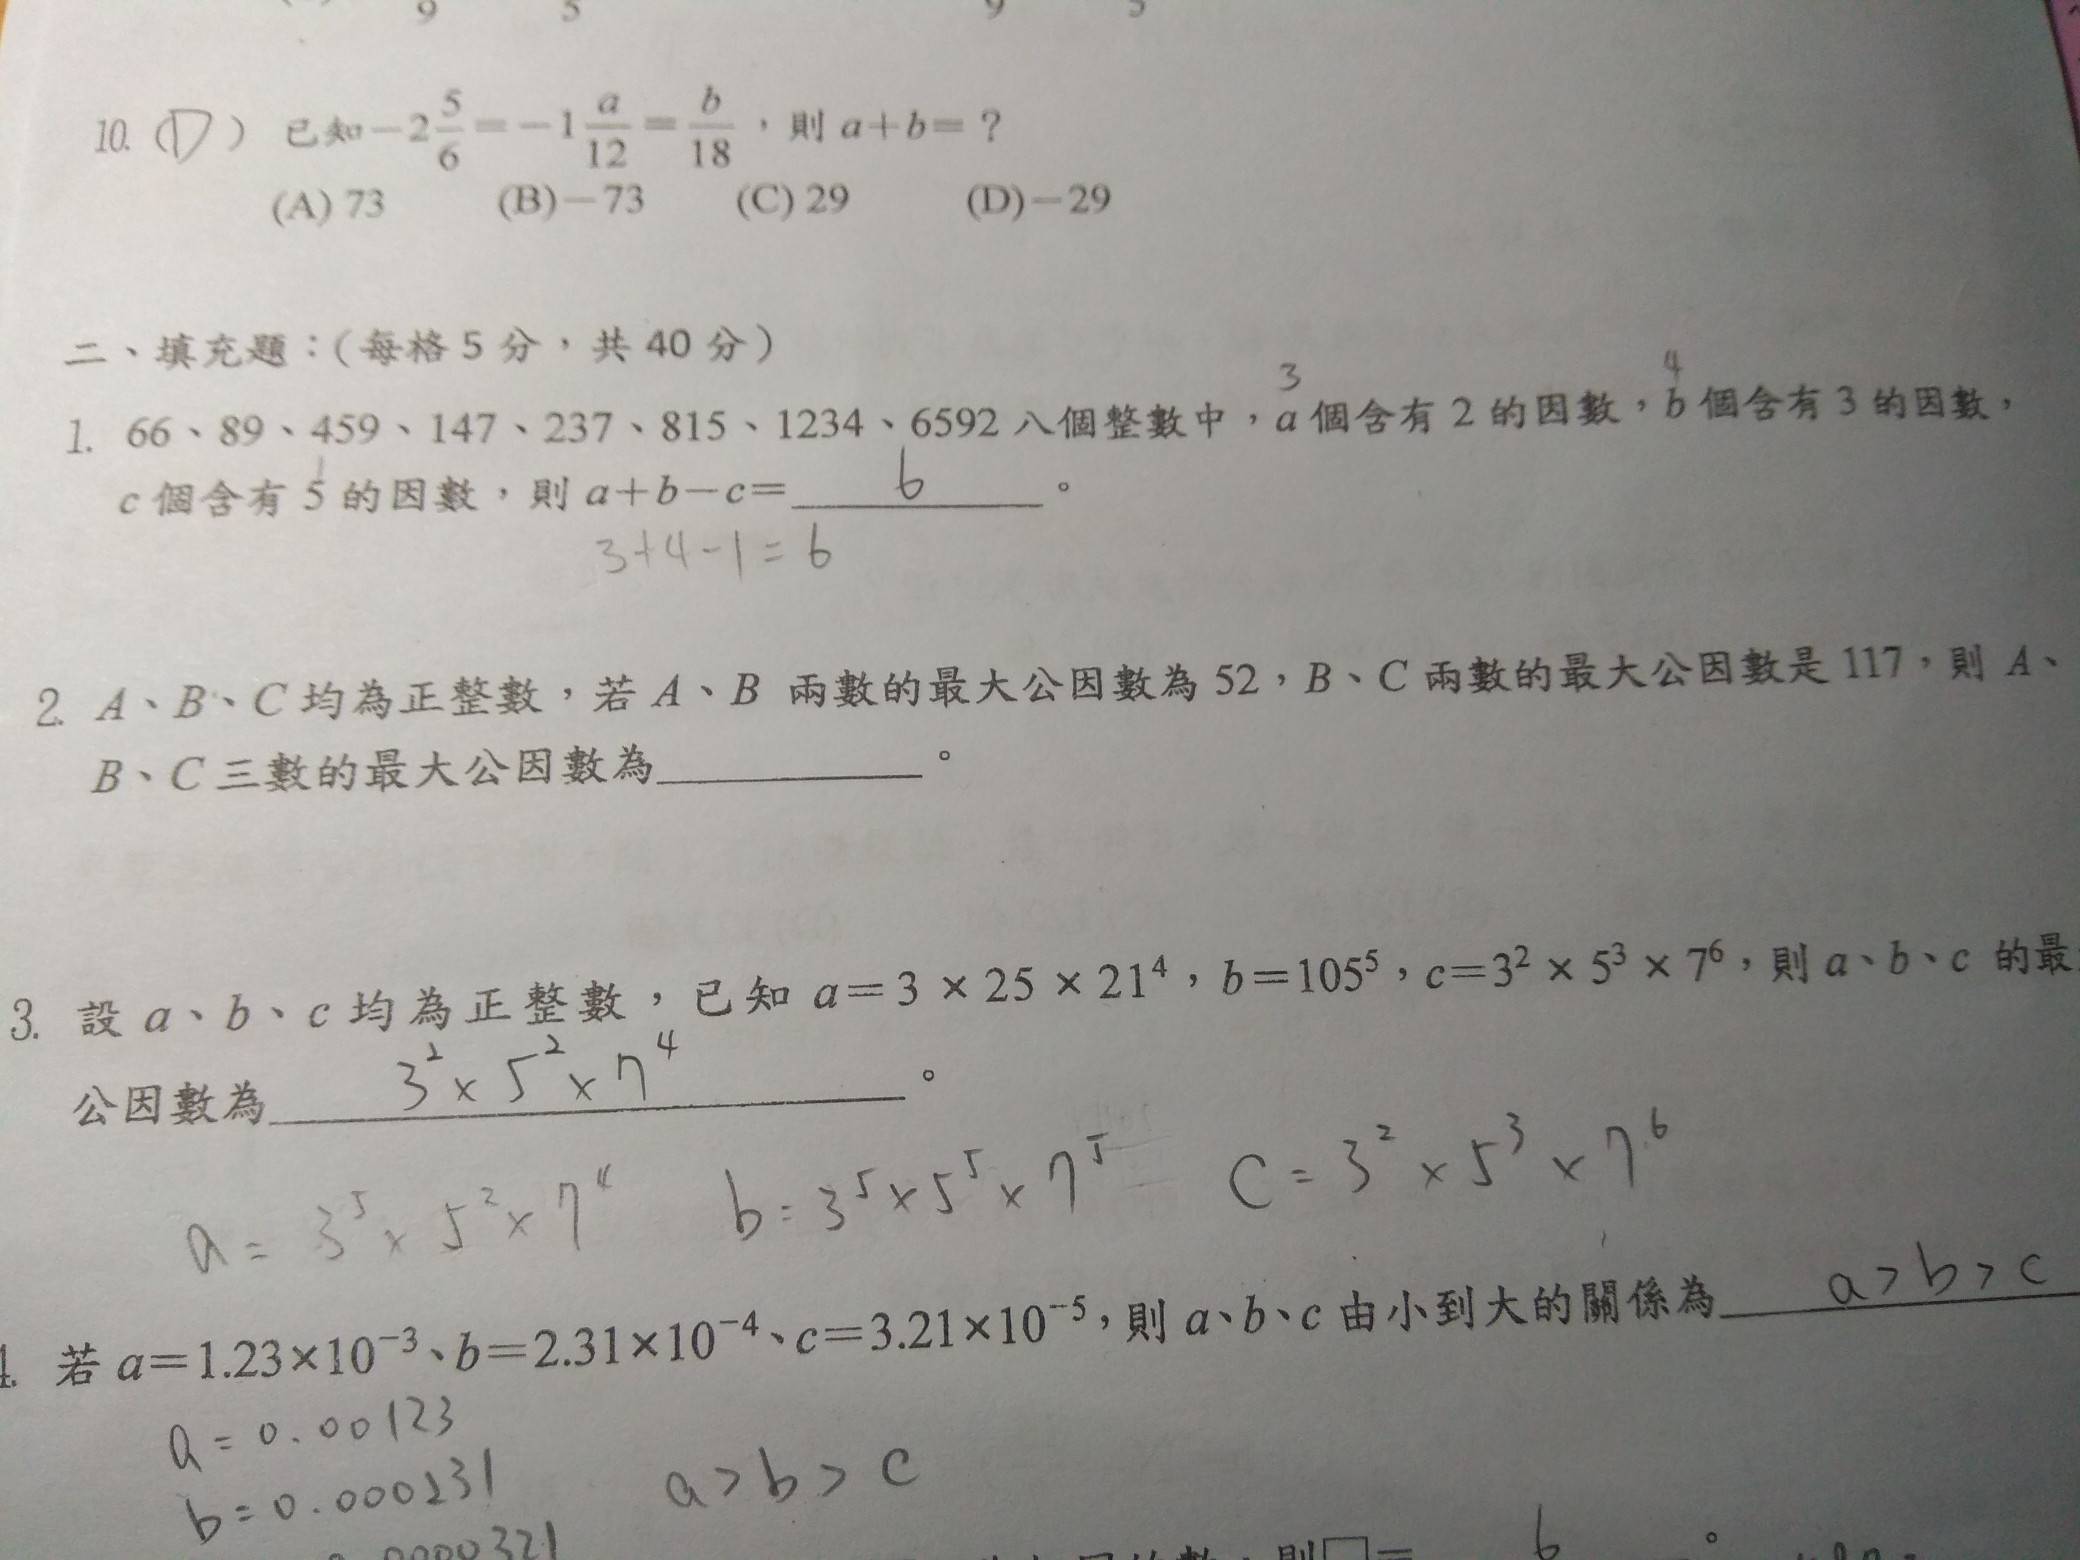 9 5 9 5
10. (D) 已知-2\frac{5}{6}=-1\frac{a}{12}=\frac{b}{18},則 a+b=?
(A) 73 (B)-73 (C) 29 (D)-29
二、填充題:(每格 5 分,共 40 分)
3 4
1. 66、89、459、147、237、815、1234、6592 八個整數中,a 個含有 2 的因數,b 個含有 3 的因數,
1
c 個含有 5 的因數,則 a+b-c= 6 。
3+4-1=6
2. A、B、C 均為正整數,若 A、B 兩數的最大公因數為 52,B、C 兩數的最大公因數是 117,則 A、
B、C 三數的最大公因數為 。
3. 設 a、b、c 均為正整數,已知 a=3×25×21⁴,b=105⁵,c=3²×5³×7⁶,則 a、b、c 的最
公因數為 3²×5²×7⁴ 。
a=3⁵×5²×7⁴ b=3⁵×5⁵×7⁵ c=3²×5³×7⁶
4. 若 a=1.23×10⁻³、b=2.31×10⁻⁴、c=3.21×10⁻⁵,則 a、b、c 由小到大的關係為 a>b>c
a=0.00123
b=0.000231 a>b>c
0.0000321
則□= 6 。